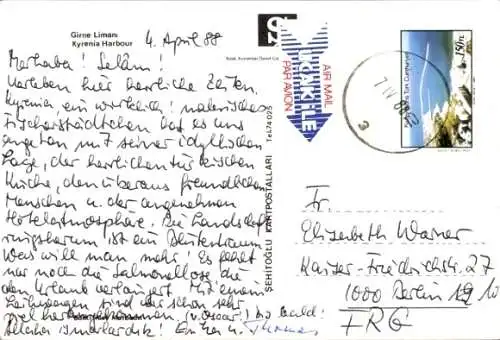 Girne Limanı
Kyrenia Harbour
4. April 88
Merhaba! Selâm!
Verleben hier herrliche Zeiten.
Kyrenia ein wirklich malerisches
Fischerstädtchen hat es uns
angetan mit seiner idyllischen
Lage, der herrlichen türkischen
Küche, den überaus freundlichen
Menschen u. der angenehmen
Hotelatmosphäre. Die Landschaft
ringsherum ist ein Blütentraum
Was will man mehr! Es fehlt
nur noch die Salmonellose die
den Urlaub verlängert. Mit einem
Leihwagen sind wir schon sehr
viel herumgekommen. (o. Oscar!) Bis bald!
Allaha ismarladık! Erika u. Thomas
ŞEHİTOĞLU KARTPOSTALLARI Tel: 74025
UÇAKLE
AIR MAIL
PAR AVION
150 TL
Fr.
Elisabeth Warner
Kaiser-Friedrichstr. 27
1000 Berlin 10
FRG